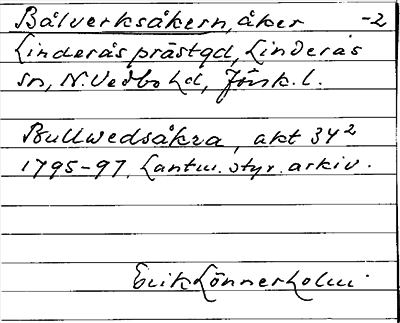 Bålverksåkern, åker -2
Linderås prästgd, Linderås
sn, N. Vedbo hd, Jönk. l.
Bullwedsåkra, akt 34²
1795-97. Lantm. styr. arkiv.
Erik Lönnerholm.